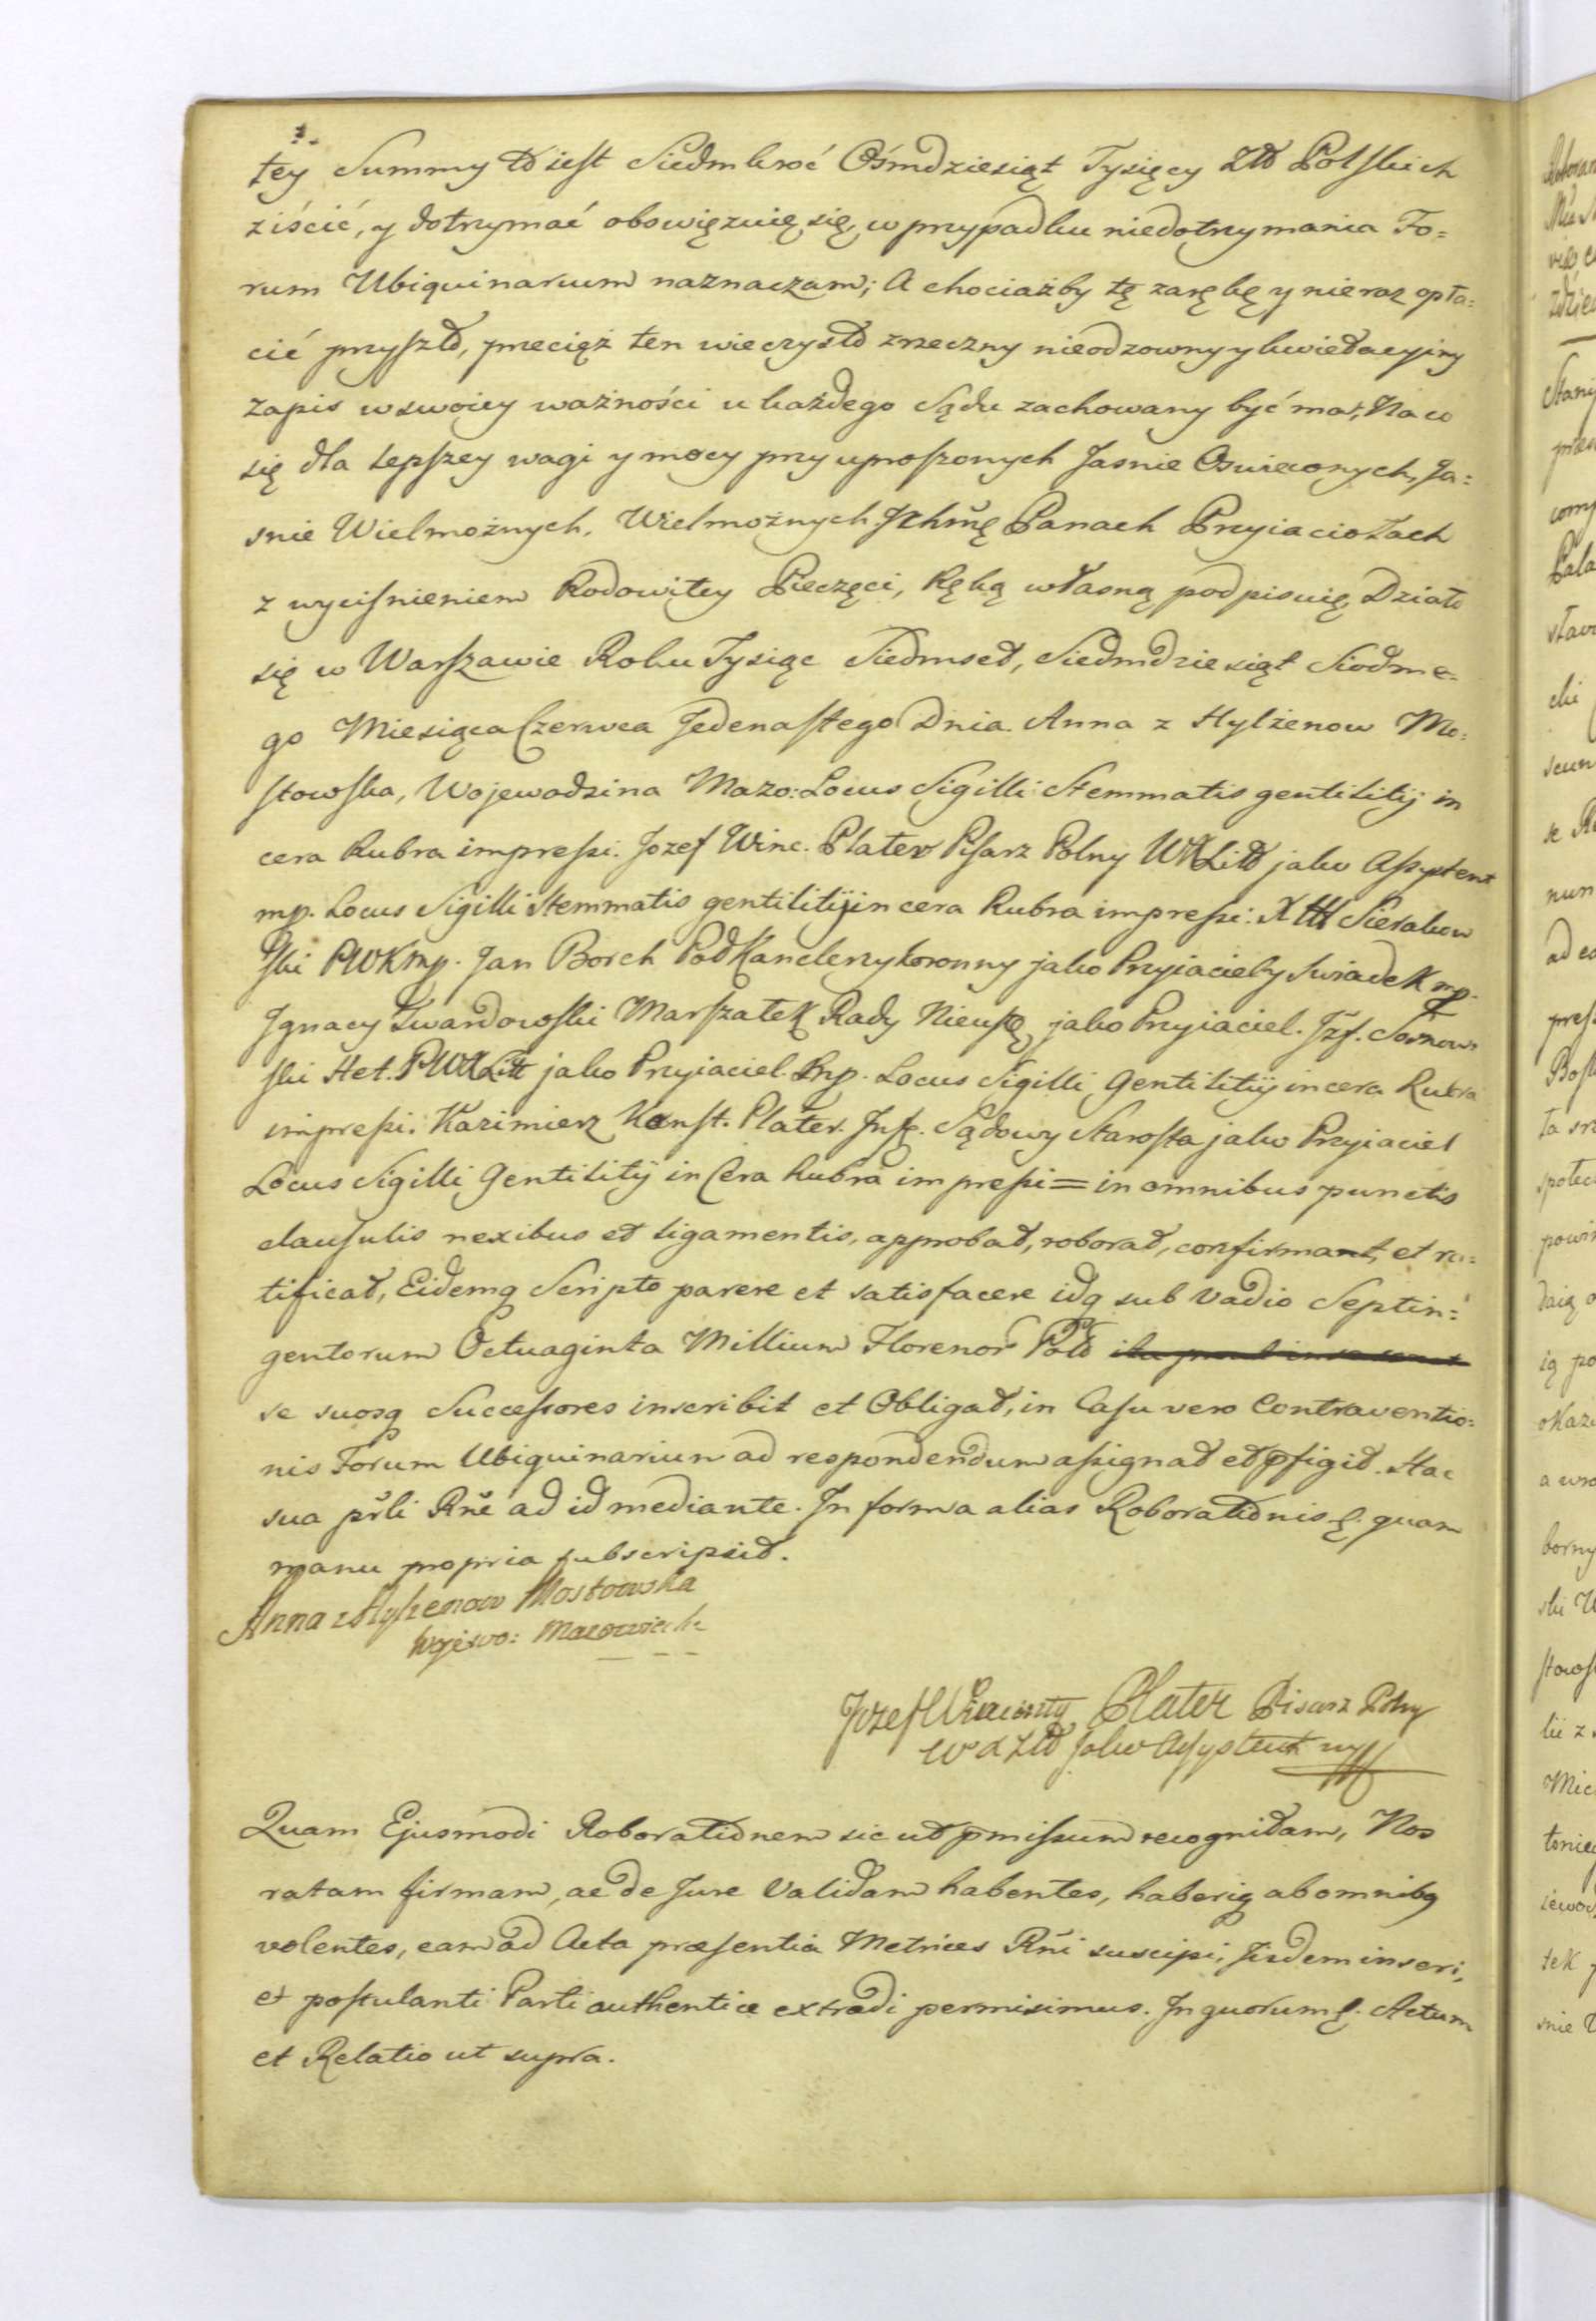 tey Summy to iest Siedmkroć Ośmdziesiąt Tysięcy Złł Polskich
ziścić, y dotrzymać obowięzuię się, w przypadku niedotrzymania Fo=
rum Ubiquinarium naznaczam; A chociażby tę zarękę y nieraz opła=
cić przyszło, przecięż ten wieczysto zrzeczny nieodzowny y kwietacyiny
zapis w swoiey ważności u każdego Sądu zachowany być ma; Na co
się dla lepszey wagi y mocy przy uproszonych Jasnie Oswieconych, Ja=
snie Wielmożnych, Wielmożnych Ichmę Panach Przyiaciołach
z wycisnieniem Rodowitey Pieczęci, Ręką własną podpisuię, Działo
się w Warszawie Roku Tysiąc Siedmset, Siedmdziesiąt Siodme=
go Miesiąca Czerwca Jedenastego Dnia. Anna z Hylżenow Mo=
stowska, Wojewodzina Mazo: Locus Sigilli Stemmatis gentilitij in
cera Rubra impressi. Jozef Winc. Plater Pisarz Polny WXLitt jako Assystent
mp. Locus Sigilli Stemmatis gentilitij in cera Rubra impressi:
ski PWK mp. Jan Borch PodKanclerzy koronny jako Przyiaciel y Swiadek mp.
Ignacy Twardowski Marszałek Rady Nieust, jako Przyiaciel. Jzf. Sosnow=
ski Het. PWXLitt jako Przyiaciel mp. Locus Sigilli Gentilitij in cera Rubra
impressi. Kazimierz Konst. Plater. Sądowy Starosta jako Przyiaciel
Locus Sigilli Gentilitij in Cera Rubra impressi = in omnibus punctis
clausulis nexibus et ligamentis, approbat, roborat, confirmant, et ra=
tificat, Eidemq Scripto parere et satisfacere idq sub Vadio Septin=
gentorum Octuaginta Millium Florenor Poll
se suosq Successores inscribit et Obligat, in Casu vero Contraventio=
nis Forum Ubiquinarium ad respondendum assignat et pfigit. Hac
sua prli Rne ad id mediante. In forma alias Roborationis ę. quam
manu propria subscripsit.
Anna z Hylzenow Mostowska
Wojewo: Mazowiecka
Jozef Wincenty Plater Pisarz Polny
W X Litt jako Assystent mp
Quam Ejusmodi Roborationem sic ut pmissum recognitam, Nos
ratam firmam, ac de Jure Validam habentes, haberiq ab omnibq
volentes, eam ad Acta præsentia Metrices Rni suscipi, Iisdem inseri,
et postulanti Parti authentice extradi permisimus. In quorum ę. Actum
et Relatio ut supra.